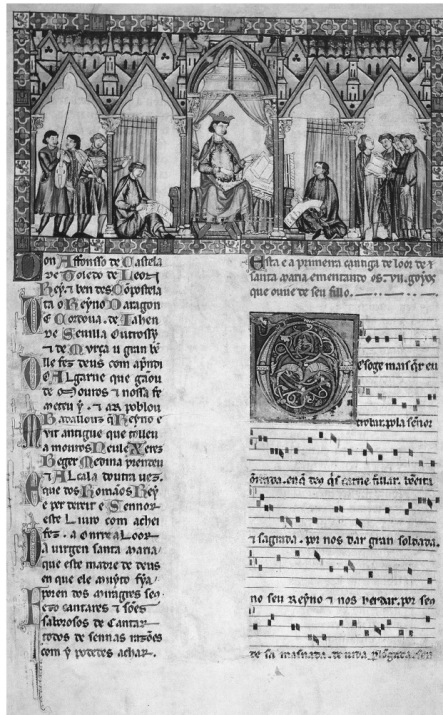 Don Affonso de Castela
de Toledo de Leon ⁊
Rey ⁊ ben des Cõpostela
ta o Reyno Daragon
De Cordoua. de Iahen
de Seuilla outrossi
⁊ de Murça u gran bẽ
lle fez deus com aprendi
Do Algarue que gãou
de Mouros ⁊ nossa fe
meteu y. ⁊ ar poblou
Badallouz q̃ Reyno e
mui antigue que tolleu
a mouros Neule Xeres
Beger Medina prendeu
⁊ Alcala doutra uez.
que dos Romãos Rey
e per dereit e Sennor
este Liuro com achei
fez. a onrr e a Loor
Da uirgen santa maria
que este madre de deus
en que ele muyto fya
poren dos miragres seus
fezo cantares ⁊ sões
saborosos de cantar
todos de sennas razões
com y podedes achar.
Esta e a primeira cantiga de loor de
santa maria ementando os. vij. goyos
que ouue de seu fillo.
Des oge mais q̃r eu
trobar. pola sẽnor
onrrada. en q̃ deus q̃s carne fillar. bẽeita
⁊ sagrada. por nos dar gran soldada.
no seu Reyno ⁊ nos herdar. por seus
de sa masnada. de uida plõgada. seu